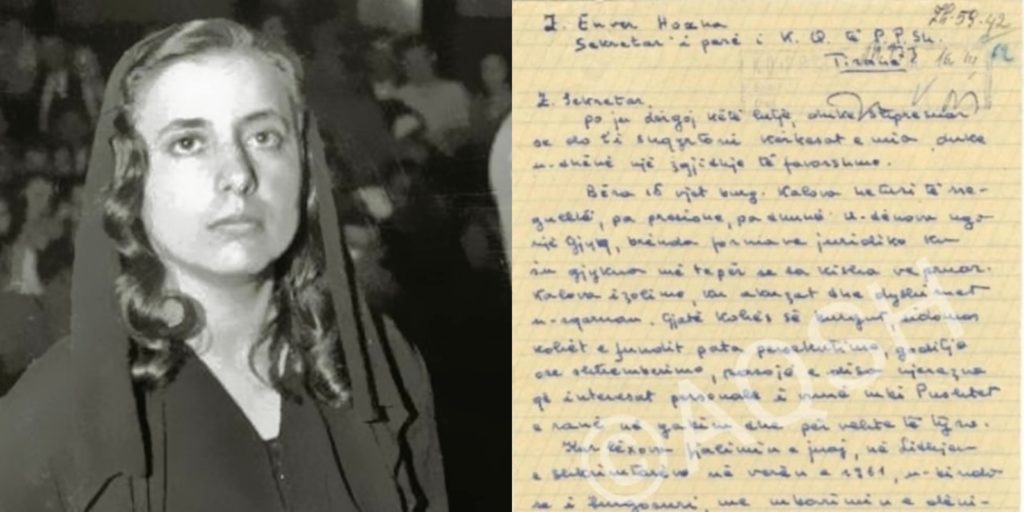 Z. Enver Hoxha
Sekretar i parë i K. Q. të P.P.Sh.
Tiranë
Z. Sekretar,
po ju dërgoj këtë letër, duke shpresuar
se do t'i shqyrtoni kërkesat e mia, duke
u-dhënë një zgjidhje të favorshme.
Bëra 16 vjet burg. Kalova hetusi të rre-
gulltë, pa presione, pa dhunë. U-dënova nga
një Gjyq, brënda formave juridike ku
u gjykua më tepër se sa kisha vepruar.
Kalova izolimo, ku akuzat dhe dyshimet
u-sqaruan. Gjatë kohës së burgut, sidomos
kohët e fundit pata persekutime, goditje
ose shtrembërime, pasojë e disa njerëzve
që interesat personale i vunë mbi Pushtet
e ranë në gabim dhe për vehte të tyre.
Kur lexova fjalimin e juaj, në Lidhjen
e shkrimtarëve në verën e 1961, u-binda
se i burgosuri, me mbarimin e dëni-
©AQSH